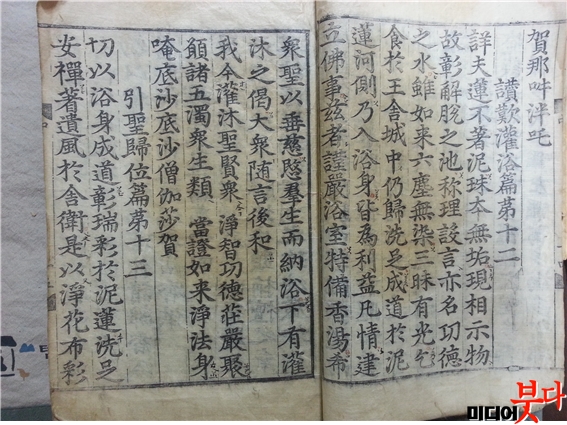 賀那吽泮吒
讚歎灌浴篇第十二
詳夫蓮不著泥珠本無垢現相示物
故彰解脫之池称理設言亦名功德
之水雖如来六塵無染三昧有光乞
食於王舍城中仍歸洗足成道於泥
蓮河側乃入浴身皆為利益凡情建
立佛事玆者謹嚴浴室特備香湯希
衆聖以垂慈愍羣生而納浴下有灌
沐之偈大衆随言後和
我今灌沐聖賢衆 淨智功德莊嚴聚
願諸五濁衆生類 當證如来淨法身
唵底沙底沙僧伽莎賀
引聖歸位篇第十三
切以浴身成道彰瑞彩於泥蓮洗足
安禪著遺風於舍衛是以淨花布彩
미디어붓다